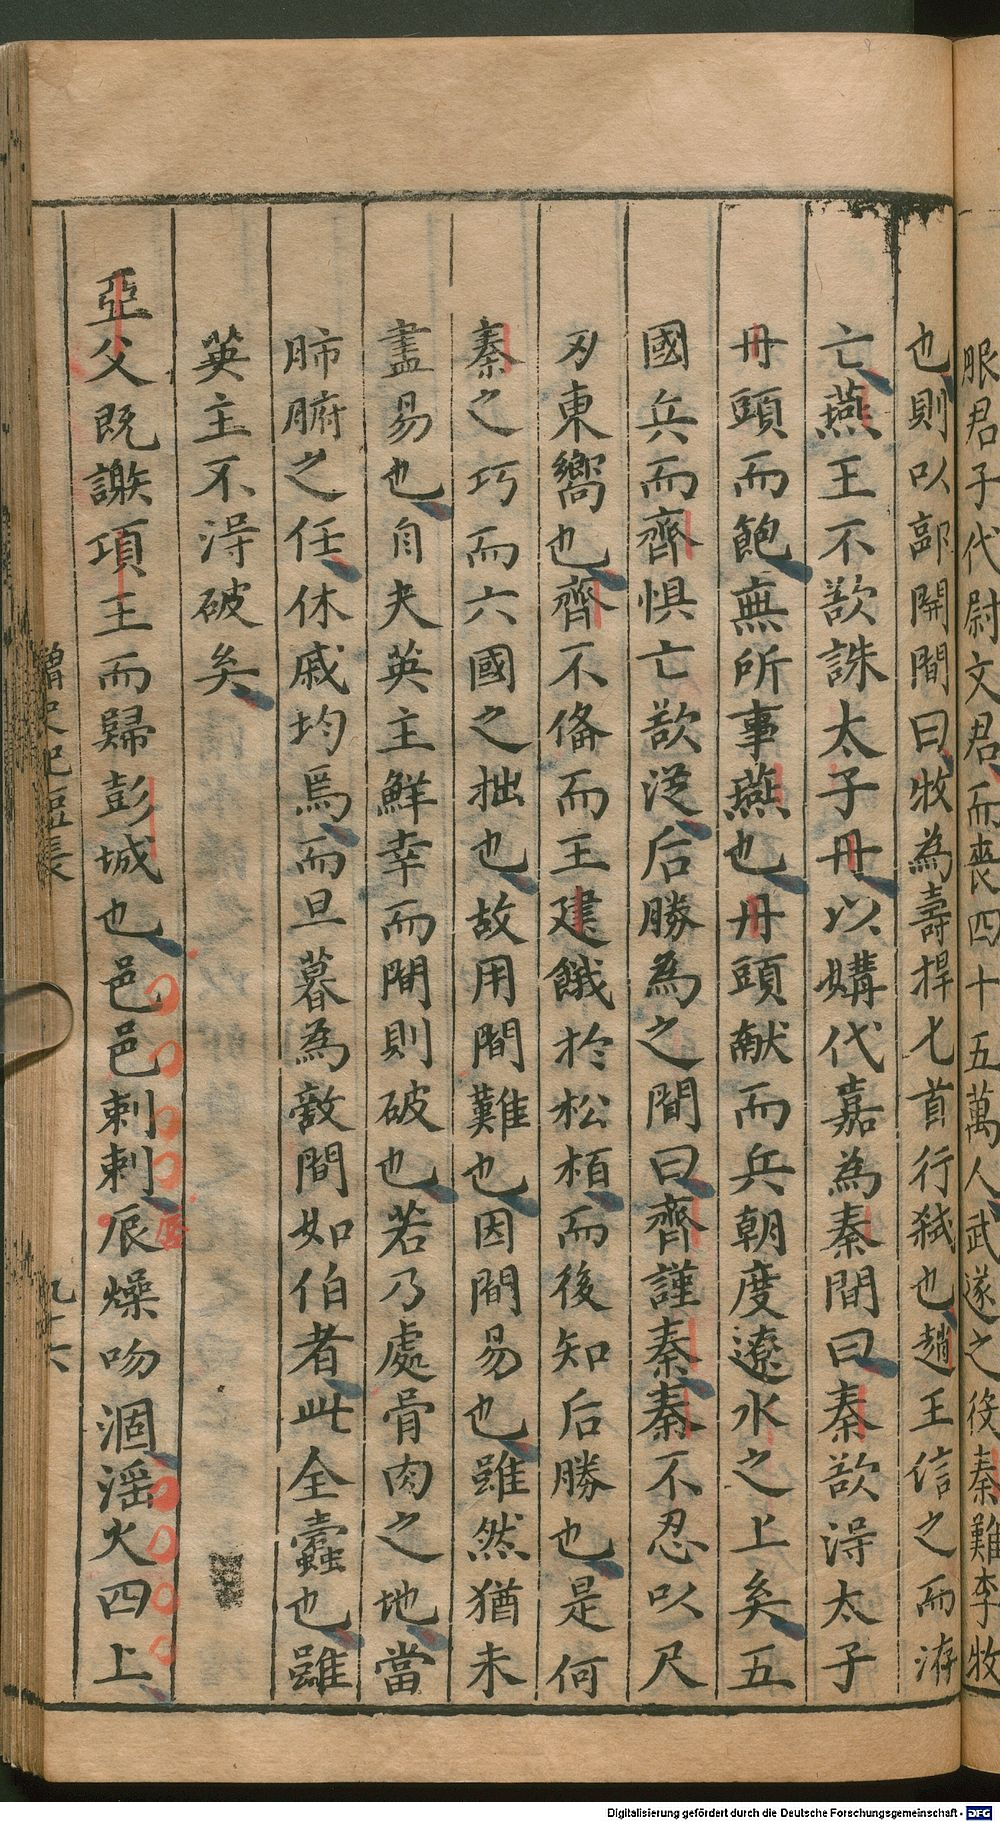 服君子代尉文君而喪四十五萬人武遂之役秦難李牧
也則以郭開間曰牧為壽捍匕首行弑也趙王信之而洊
亡燕王不欲誅太子丹以媾代嘉為秦間曰秦欲淂太子
丹頭而飽無所事燕也丹頭献而兵朝度遼水之上矣五
國兵而齊惧亡欲従后勝為之間曰齊謹秦秦不忍以尺
刃東嚮也齊不俻而王建餓扵松栢而後知后勝也是何
秦之巧而六國之拙也故用間難也因間易也雖然猶未
盡易也自夫英主鮮幸而間則破也若乃處骨肉之地當
肺腑之任休戚均焉而旦暮為敵間如伯者此全蠹也雖
英主不淂破矣
亞父既謝項王而歸彭城也邑邑剌剌辰燥吻涸滛火四上
唇
Digitalisierung gefördert durch die Deutsche Forschungsgemeinschaft - DFG